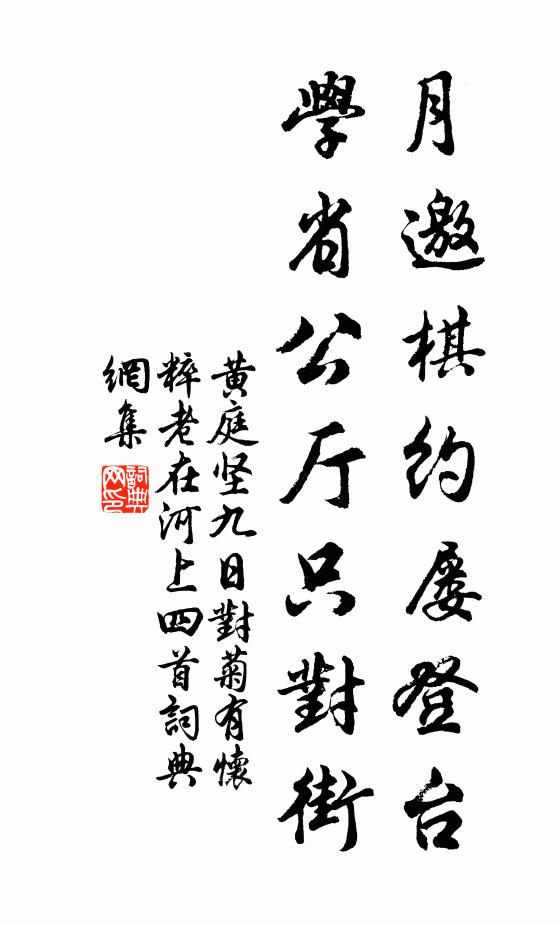 月邀棋约屡登台
學省公厅只對街
黄庭坚九日對菊有懷
粹老在河上四首詞典
網集
詞典網印